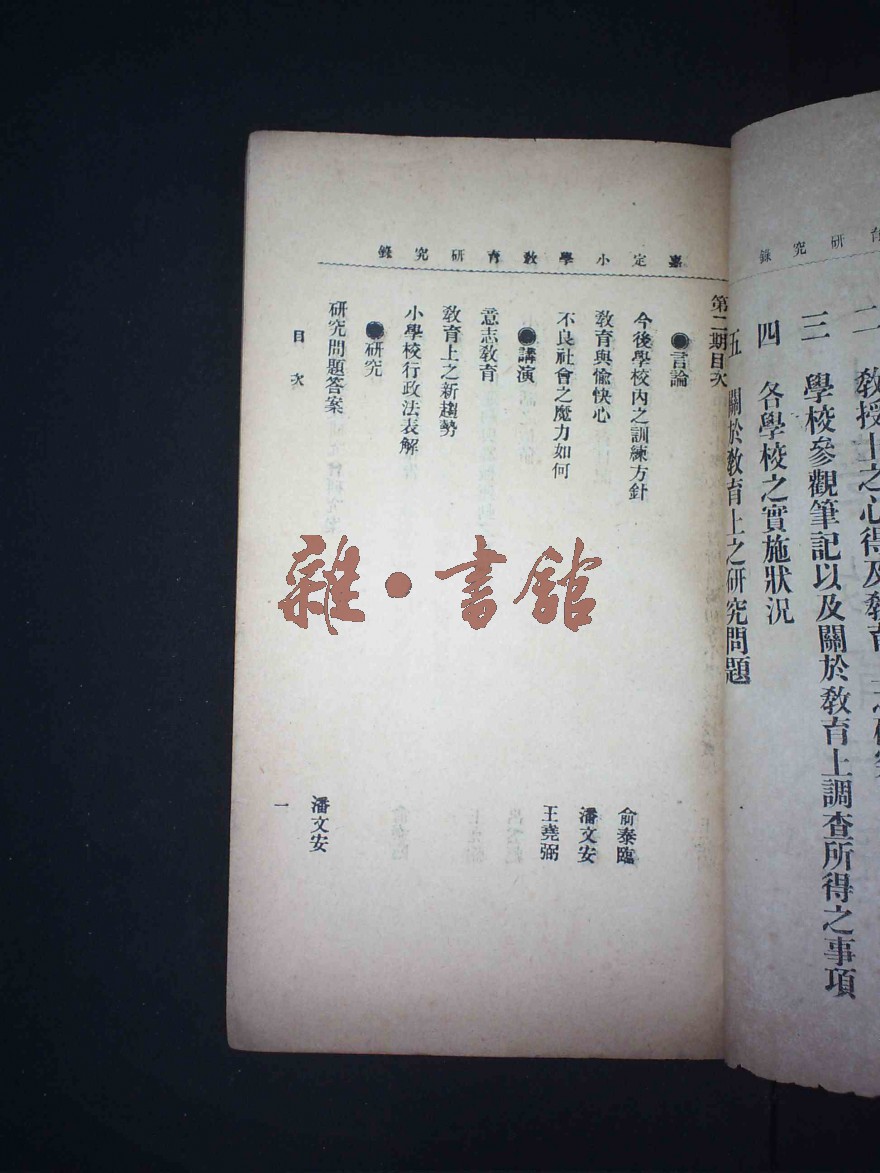 育研究錄
二 教授上之心得及教育
三 學校參觀筆記以及關於教育上調查所得之事項
四 各學校之實施狀況
五 關於教育上之研究問題
嘉定小學教育研究錄
第二期目次
●言論
今後學校內之訓練方針 俞泰臨
教育與愉快心 潘文安
不良社會之魔力如何 王堯弼
●講演
意志教育
教育上之新趨勢
小學校行政法表解
●研究
研究問題答案 潘文安
目次 一
雜·書館